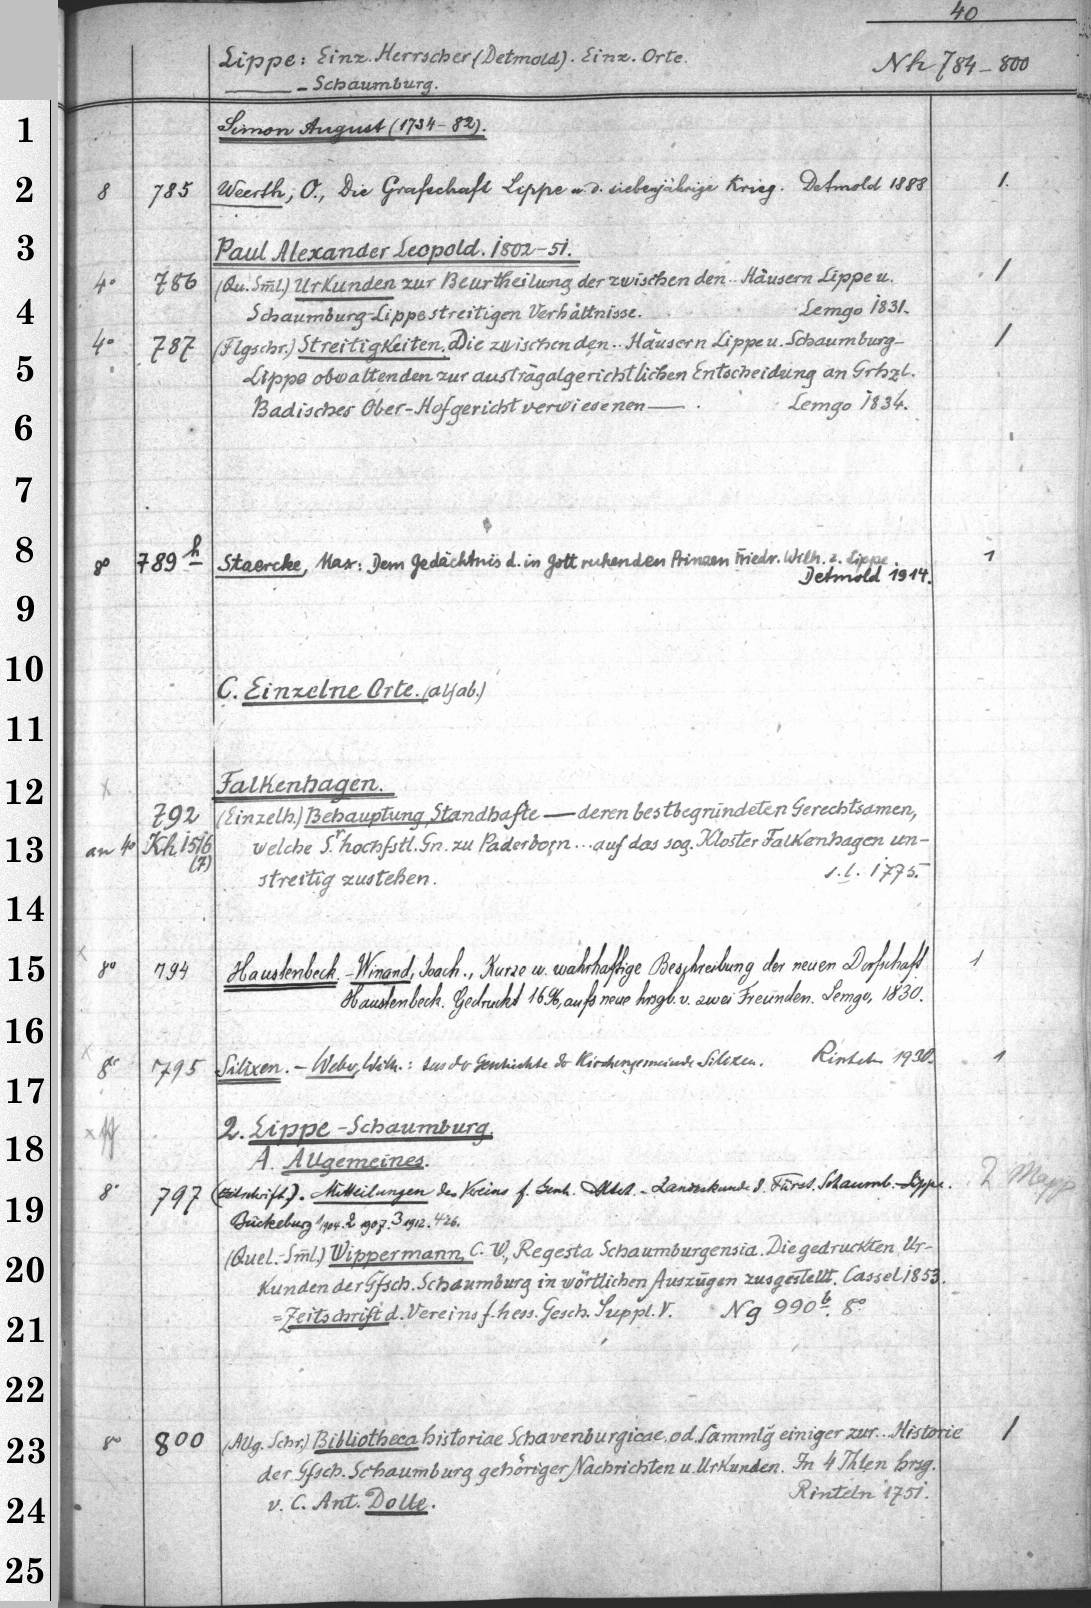 40
Lippe: Einz. Herrscher (Detmold). Einz. Orte. Nh 784-800
—— - Schaumburg.
1 Simon August (1734-82).
2 8 785 Weerth, O., Die Grafschaft Lippe u. d. siebenjährige Krieg. Detmold 1888 1.
3 Paul Alexander Leopold. 1802-51.
4° 786 (Qu. Sml.) Urkunden zur Beurtheilung der zwischen den .. Häusern Lippe u. 1
4 Schaumburg-Lippe streitigen Verhältnisse. Lemgo 1831.
4° 787 (Flgschr.) Streitigkeiten, Die zwischen den .. Häusern Lippe u. Schaumburg- 1
5 Lippe obwaltenden zur austrägalgerichtlichen Entscheidung an Grhzl.
6 Badisches Ober-Hofgericht verwiesenen —. Lemgo 1834.
7
8 8° 789 h Staercke, Max: Dem Gedächtnis d. in Gott ruhenden Prinzen Friedr. Wilh. z. Lippe. 1
Detmold 1914.
9
10 C. Einzelne Orte. (alfab.)
11
12 Falkenhagen.
792 (Einzelh.) Behauptung, Standhafte — deren bestbegründeten Gerechtsamen,
13 an 4° Kh 1516 welche Sr hochfstl. Gn. zu Paderborn ... auf das sog. Kloster Falkenhagen un-
(7) streitig zustehen. s. l. 1775.
14
15 8° 794 Haustenbeck. - Winand, Joach., Kurze u. wahrhaftige Beschreibung der neuen Dorfschaft 1
Haustenbeck. Gedruckt 16 , aufs neue hrsgb. v. zwei Freunden. Lemgo, 1830.
16
17 8° 795 Silixen. - Weber, Wilh.: Aus der Geschichte der Kirchengemeinde Silixen. Rinteln 1930. 1
18 2. Lippe-Schaumburg.
A. Allgemeines.
19 8° 797 (Zeitschrift). Mitteilungen des Vereins f. Gesch. - Landeskunde d. Fürst. Schaumb.-Lippe. 2 Mapp
Bückeburg 1 1904. 2 1907. 3 1912.
20 (Quel.-Sml.) Wippermann, C. W., Regesta Schaumburgensia. Die gedruckten Ur-
kunden der Gfsch. Schaumburg in wörtlichen Auszügen zusgestellt. Cassel 1853.
21 = Zeitschrift d. Vereins f. hess. Gesch. Suppl. V. Ng 990 b. 8°
22
23 8° 800 (Allg. Schr.) Bibliotheca historiae Schavenburgicae, od. Sammlg einiger zur ... Historie 1
der Gfsch. Schaumburg gehöriger Nachrichten u. Urkunden. In 4 Thlen hrsg.
24 v. C. Ant. Dolle. Rinteln 1751.
25